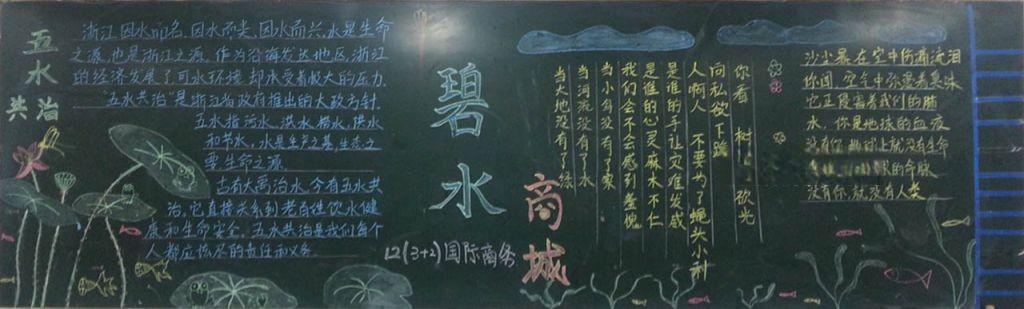 五水共治
浙江因水而名、因水而美、因水而兴,水是生命
之源,也是浙江之源。作为沿海发达地区,浙江
的经济发展了可水环境却承受着极大的压力。
"五水共治"是浙江省政府推出的大政方针。
五水指污水、洪水、涝水、供水
和节水,水是生产之基,生态之
要,生命之源。
古有大禹治水,今有五水共
治,它直接关系到老百姓饮水健
康和生命安全。五水共治是我们每个
人都应该尽的责任和义务
碧水
商城
12(3+2)国际商务
你看 树 砍光
向私欲下跪
人啊人 不要为了蝇头小利
是谁的手让灾难发威
是谁的心灵麻木不仁
我们会不会感到羞愧
当小鸟没有了家
当河流没有了水
当大地没有了绿
沙尘暴在空中伤着流泪
你问 空气中弥漫着臭味
它正侵害着我们的肺
水,你是地球的血液
没有你,地球上就没有生命
的命脉
没有你,就没有人类